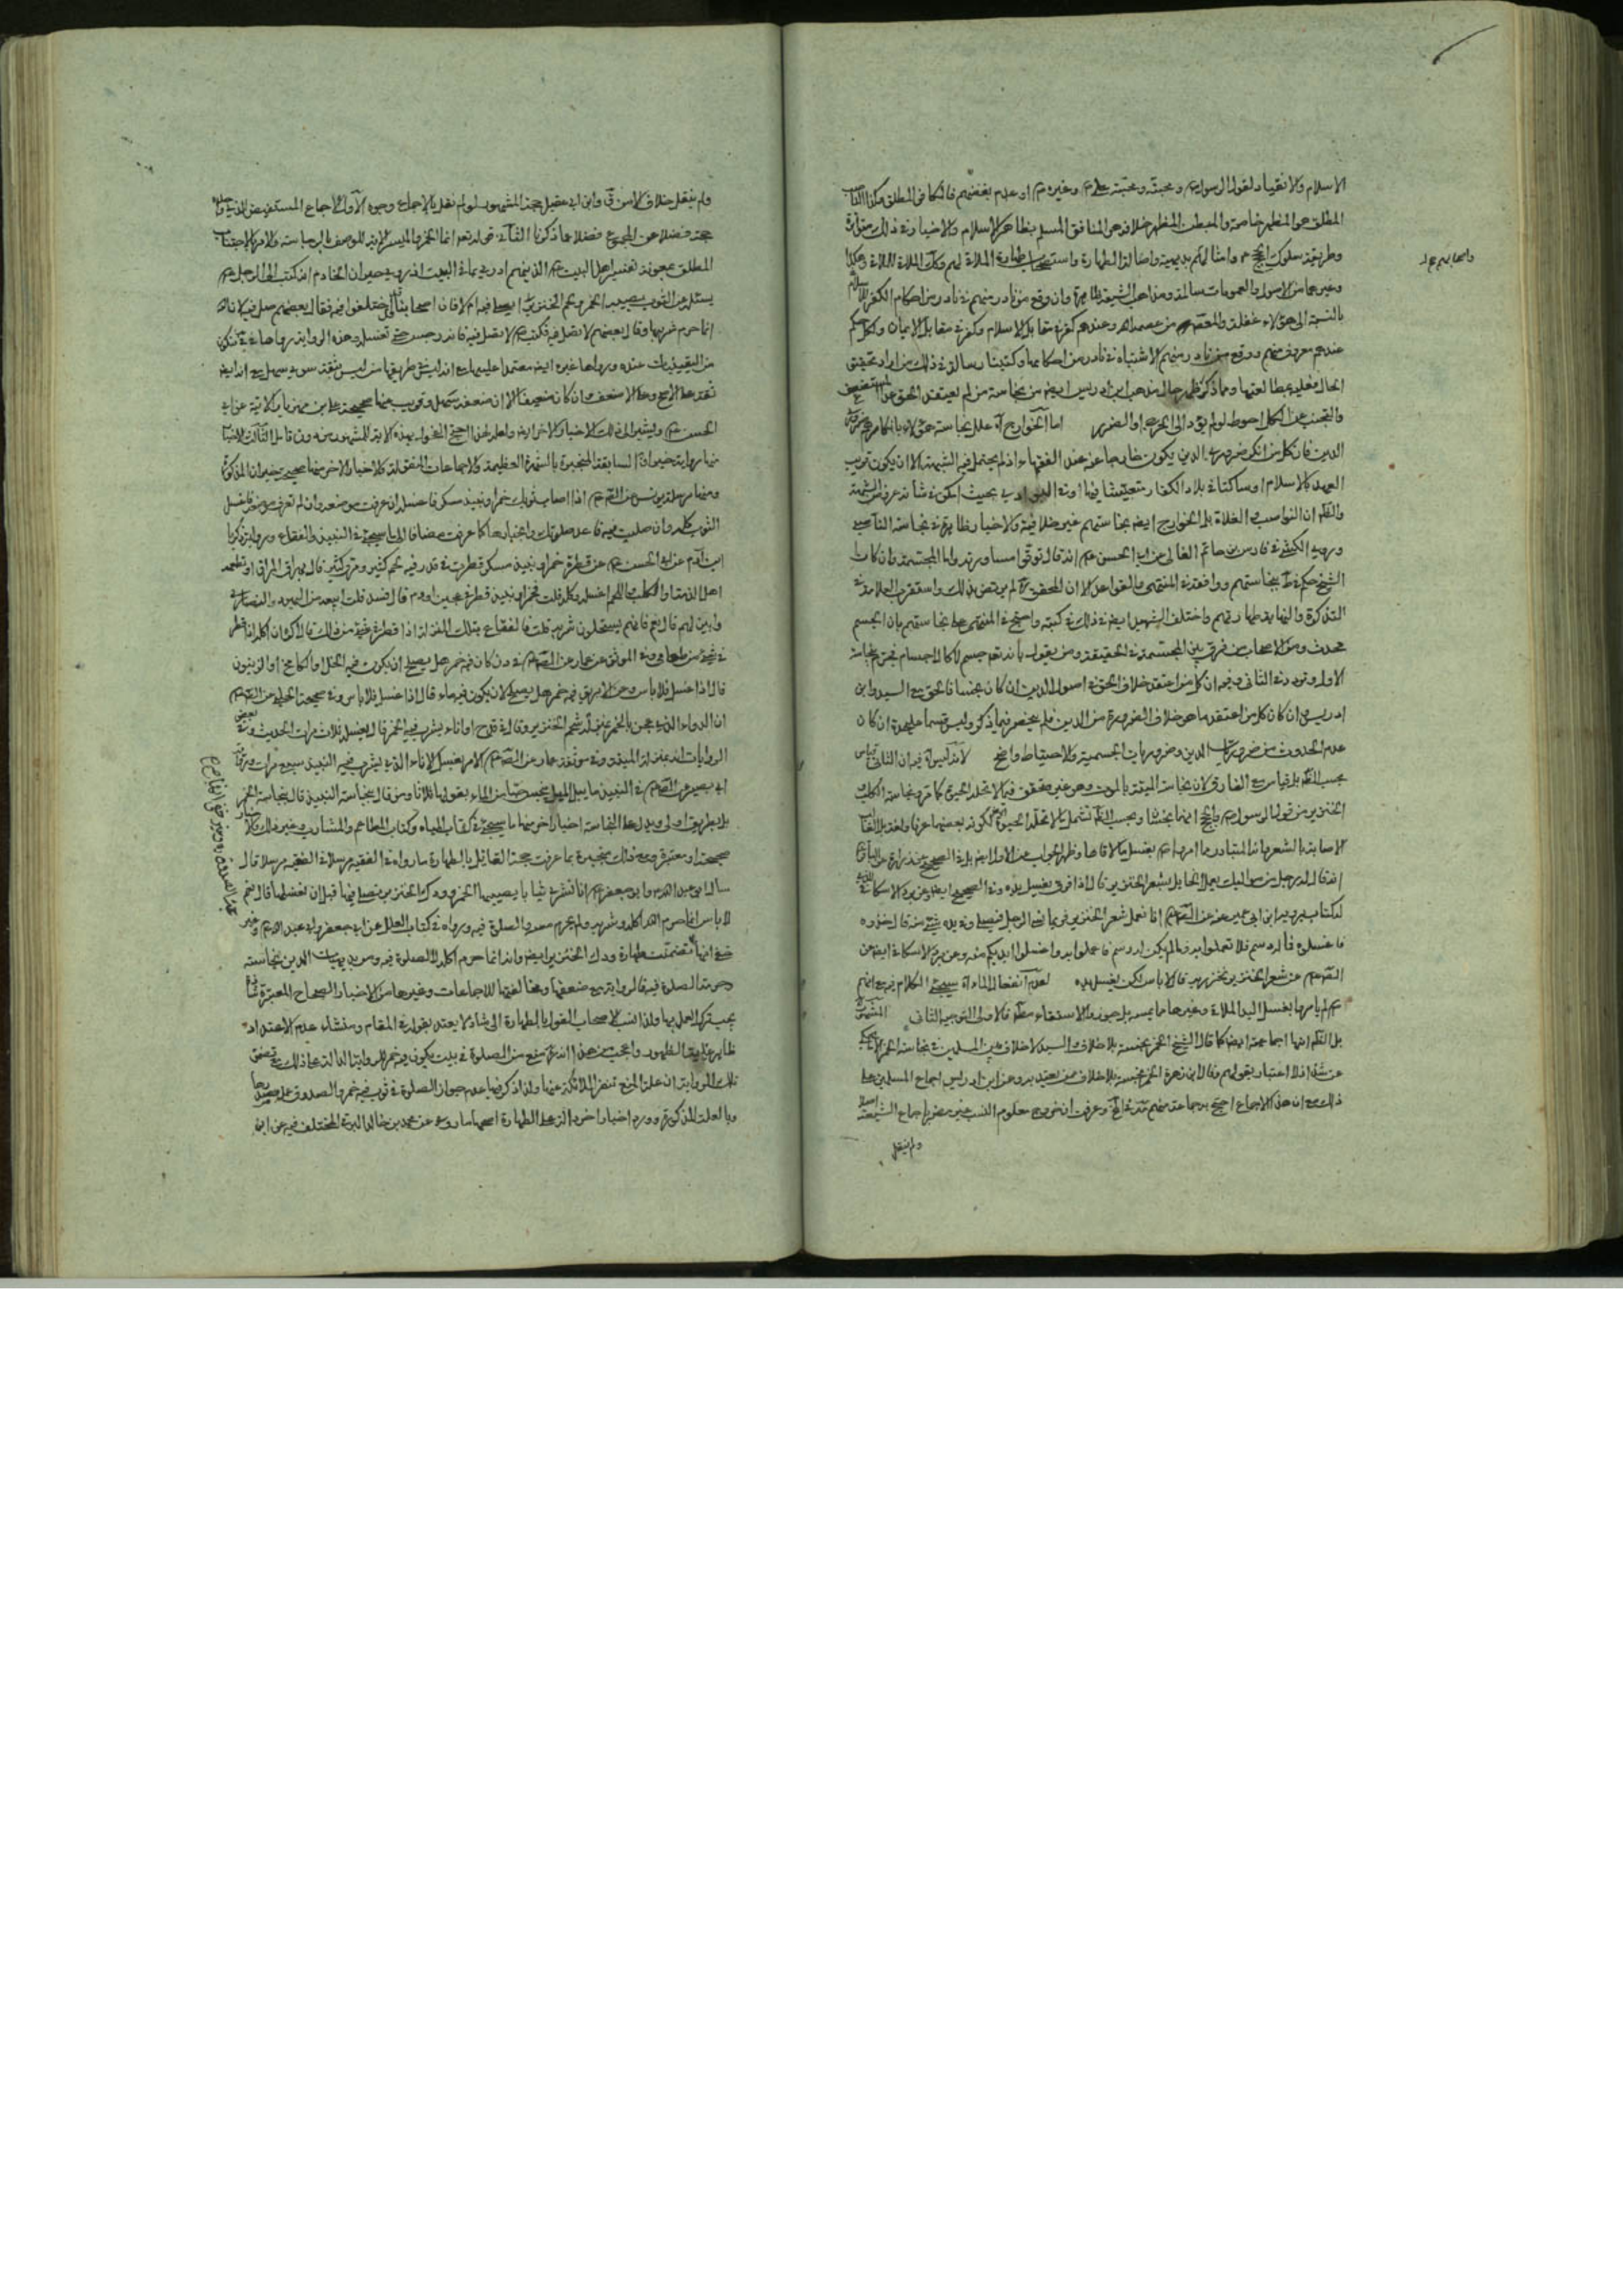 الاسلام والانقياد لقول الرسول ص ومحبته ومحبة علي ع وغيره ع او عدم بغضهم فالكافر المطلق
المطلق هو المظهر خاصة والمبطن المظهر خلافه هو المنافق المسلم بظاهر الاسلام والاخبار في ذلك متواترة
وطريقة سلوك وامثالهم بديهية واصالة الطهارة واستصحاب طهارة الملاقي لهم وكذا الملاقى للملاقي وهكذا
وغيرها من الاصول والعمومات سالمة ومذاهب الشيعة ظاهرة وان وقع من نادر منهم في نادر من احكام الكفر
بالنسبة الى هؤلاء غفلة والمعصوم من عصمه الله وعندهم كفر في مقابل الاسلام وكفر في مقابل الايمان ولكل حكم
عندهم معروف منهم ووقع من نادر منهم الاشتباه في نادر من احكامها وكتبنا رسالة في ذلك من اراد تحقيق
الحال فعليه بمطالعتها ومما ذكر ظهر حال مذهب ابن ادريس ايضا من نجاسة من لم يعتقد الحق عدا المستضعف
والتجنب عن الكل احوط لو لم يؤد الى الحرج او الضرر اما الخوارج آه علل نجاسة هؤلاء بانكارهم ضروري
الدين فان كل من انكر ضروري الدين يكون خارجا عنه عند الفقهاء اذا لم يحتمل فيه الشبهة الا ان يكون قريب
العهد بالاسلام او ساكنا في بلاد الكفار متعيشا فيها او في البوادي بحيث امكن في شانه عروض الشبهة
والظ ان النواصب والغلاة بل الخوارج ايضا نجاستهم غير خلافية والاخبار ظاهرة في نجاسة الناصبي
وروى الكشي في فارس بن حاتم الغالي عن ابي الحسن ع انه قال توقوا مساورته واما المجسمة وان كان
الشيخ حكم في ط بنجاستهم ووافقه في المنتهى والقواعد الا ان المحقق ره لم يرتض بذلك واستقرب العلامة في
التذكرة والنهاية طهارتهم واختلف الشهيد ايضا في ذلك في كتبه واحتج في المنتهى على نجاستهم بان الجسم
محدث ومن الاصحاب من فرق بين المجسمة في الحقيقة ومن يقول بانه تع جسم لا كالاجسام فجزم بنجاسة
الاول وتردد في الثاني وفيه ان كل من اعتقد خلاف الحق في اصول الدين ان كان نجسا فالحق مع السيد وابن
ادريس وان كان كل من اعتقد ما هو خلاف الضرورة من الدين فلم ينحصر فيما ذكر وليس قسما عليحدة ان كان
عدم الحدوث من ضروريات الدين وضروريات الجسمية والاحتياط واضح لانه ليس آه فيه ان الثاني قياس
بحسب الظ بل قياس مع الفارق لان نجاسة الميتة بالموت وهو غير متحقق فيما لا تحله الحيوة كما مر ونجاسة الكلب و
الخنزير من قول الرسول ص وا
الاصابة بالشعر هذا المتبادر مما امروا ع بغسل ما لاقاها وظهر الجواب عن الاول ايضا بل في الصحيح عن زرارة عن الباقر ع
انه قال له رجل من مواليك يعمل الحمايل بشعر الخنزير قال اذا فرغ يغسل يده وفي الصحيح ايضا عن برد الاسكاف
لكتاب يرويه ابن ابي عمير عنه عن الص ع انا نعمل شعر الخنزير فربما نسي الرجل فيصلي وفي يده شيء منه قال خذوه
فاغسلوه فما له دسم فلا تعملوا به وما لم يكن له دسم فاعملوا به واغسلوا ايديكم منه وعن برد الاسكاف ايضا عن
الص ع عن شعر الخنزير يخرز به قال لا باس لكن يغسل يده لعدم انفعال الماء آه سيجيء الكلام فيه مع انهم
ع لم يامروا بغسل اليد الملاقية وغيرها مما يمسه بل جوزوا الاستقاء مط فالاولى التوجيه الثاني المشهور
بل الظ انها اجماعية ايضا كما قال الشيخ الخمر نجسة بلا خلاف والسيد لا خلاف بين المسلمين في نجاسة الخمر الا ما يحكى
عن شذاذ لا اعتبار بقولهم وقال ابن زهرة الخمر نجسة بلا خلاف ممن يعتد به وعن ابن ادريس اجماع المسلمين على
ذلك مع ان هذا الاجماع احتج به جماعة منهم وعرفت ان خروج معلوم النسب غير مضر باجماع الشيعة
ولم ينقل
واصحابهم
ولم ينقل خلاف الا من ق وابن ابي عقيل حجة المشهور لو لم نقل بالاجماع وجوه الاول الاجماع المستفيض
حجة فضلا عن المجموع فضلا عما ذكرنا الثاني قوله تع انما الخمر والميسر الاية للوصف بالرجاسة والامر بالاجتناب
المطلق بمعونة تفسير اهل البيت ع الذينهم ادرى بما في البيت اذ روى خيران الخادم انه كتب الى الرجل ع
يسئله عن الثوب يصيبه الخمر ولحم الخنزير ايصلى فيه ام لا فان اصحابنا قد اختلفوا فيه فقال بعضهم صل فيه لان الله
انما حرم شربها وقال بعضهم لا تصل فيه فكتب ع لا تصل فيه فانه رجس حتى تغسله هذه الرواية رواها في في فتكون
من اليقينيات عنده ورواها غيره ايضا معتمدا عليها مع انه ليس في طريقها من ليس بثقة سوى سهل مع انه ايضا
ثقة على الاصح وعلى الاضعف وان كان ضعيفا الا ان ضعفه سهل وقريب منها صحيحة علي بن مهزيار الاتية عن ابي
الحسن ع ويشير الى ذلك الاخبار الاخر ايضا ولعله لهذا احتج الفحول بهذه الاية للمشهور منه دون قابل الثالث الاخبار
منها رواية خيران السابقة المنجبرة بالشهرة العظيمة والاجماعات المنقولة والاخبار الاخر منها صحيحة خيران المذكورة
ومنها مرسلة يونس عن الص ع اذا اصاب ثوبك خمر او نبيذ مسكر فاغسله ان عرفت موضعه وان لم تعرف موضعه فاغسل
الثوب كله وان صليت فيه فاعد صلوتك وانجبارها كما عرفت مضافا الى ما سيجيء في النبيذ والفقاع ورواية زكريا
ابن آدم عن ابي الحسن ع عن قطرة خمر او نبيذ مسكر قطرت في قدر فيه لحم كثير ومرق كثير قال يهراق المرق او تطعمه
اهل الذمة او الكلب واللحم اغسله وكله قلت فخمر او نبيذ قطر في عجين او دم قال فسد قلت ابيعه من اليهود والنصارى
وابين لهم قال نعم فانهم يستحلون شربه قلت فالفقاع بتلك المنزلة اذا قطر في شيء من ذلك قال اكره ان آكله اذا قطر
في شيء من طعامي وفي الموثق عن عمار عن الص ع في دن كان فيه خمر هل يصلح ان يكون فيه الخل او الكامخ او الزيتون
قال اذا غسل فلا باس وعن الابريق فيه خمر هل يصلح لان يكون فيه ماء قال اذا غسل فلا باس وفي صحيحة الحلبي عن الص ع
ان الدواء الذي عجن بالخمر بمنزلة شحم الخنزير وقال في قدح او اناء يشرب فيه الخمر قال يغسله ثلاث مرات الحديث وفي بعض
الروايات انه بمنزلة الميتة وفي موثقة عمار عن الص ع الامر بغسل الاناء الذي يشرب فيه النبيذ سبع مرات
ابي بصير عن الص ع في النبيذ ما يبل الميل ينجس حبا من الماء يقولها ثلاثا ومن قال بنجاسة النبيذ قال بنجاسة الخمر
بل بطريق اولى ويدل على النجاسة اخبار اخر منها ما سيجيء في كتاب المياه وكتاب المطاعم والمشارب وغير ذلك
صحيحة او معتبرة ومع ذلك منجبرة بما عرفت حجة القائل بالطهارة ما رواه في الفقيه مرسلا في الفقيه مرسلا قال
سال ابو عبد الله ع وابو جعفر ع انا نشتري ثيابا يصيبها الخمر وودك الخنزير نصلي فيها قبل ان نغسلها قال نعم
لا باس انما حرم الله اكله وشربه ولم يحرم لبسه والصلوة فيه ورواه في كتاب العلل عن ابي جعفر وابي عبد الله ع وغير
خفي انها تضمنت طهارة ودك الخنزير ايضا وانه انما حرم اكله لا الصلوة فيه ومن بديهيات الدين نجاسته
وحرمة الصلوة فيه فالرواية مع ضعفها ومخالفتها للاجماعات وغيرها من الاخبار الصحاح المعتبرة
يجب ترك العمل بها ولذا نسب الاصحاب القول بالطهارة الى شاذ لا يعتد بقوله في المقام ومنشاء عدم الاعتداد
ظاهر غاية الظهور واعجب من هذا انه ره منع من الصلوة في بيت يكون فيه خمر للرواية الدالة على ذلك مع تضمن
تلك الرواية ان علة المنع تنفر الملائكة عنها ولذا ذكر فيها عدم جواز الصلوة في ثوب فيه خمر والصدوق
وبالعلة المذكورة وورد اخبار اخر دالة على الطهارة اصحها ما روي عن محمد بن خالد البرقي المختلف فيه عن ابن